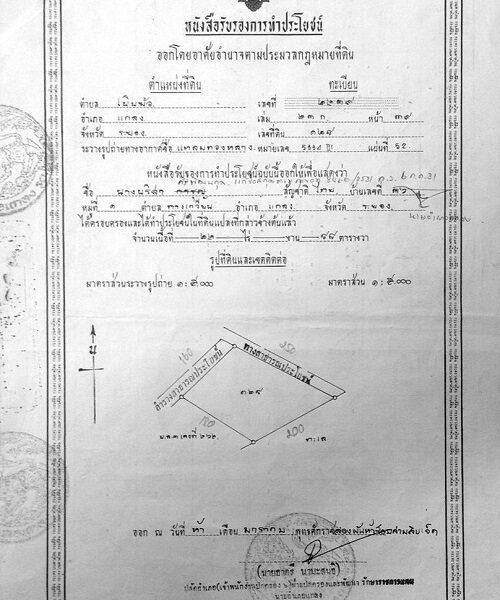 หนังสือรับรองการทำประโยชน์
ออกโดยอาศัยอำนาจตามประมวลกฎหมายที่ดิน
ตำแหน่งที่ดิน
ทะเบียน
ตำบล เนินฆ้อ เลขที่ ๒๒๓๙
อำเภอ แกลง เล่ม ๒๓ ก. หน้า ๓๙
จังหวัด ระยอง เลขที่ดิน ๑๒๘
ระวางรูปถ่ายทางอากาศชื่อ แหลมทองหลาง หมายเลข แผ่นที่ 52.
หนังสือรับรองการทำประโยชน์ฉบับนี้ออกให้เพื่อแสดงว่า
ชื่อ สัญชาติ ไทย บ้านเลขที่
หมู่ที่ ๑ ตำบล ทางเกวียน อำเภอ แกลง จังหวัด ระยอง
ได้ครอบครองและได้ทำประโยชน์ในที่ดินแปลงที่กล่าวข้างต้นแล้ว
จำนวนเนื้อที่ ๒๒ ไร่ งาน ๙๘ ตารางวา
รูปที่ดินและเขตติดต่อ
มาตราส่วนระวางรูปถ่าย ๑:๕,๐๐๐ มาตราส่วน ๑:๕,๐๐๐
น
160
250
ลำรางสาธารณประโยชน์
ทางสาธารณประโยชน์
๑๒๘
200
น.ส.๓ เลขที่ ๒๖๒
ทะเล
ออก ณ วันที่ ห้า เดือน มกราคม พุทธศักราชสองพันห้าร้อยสามสิบเจ็ด
นายอำเภอแกลง